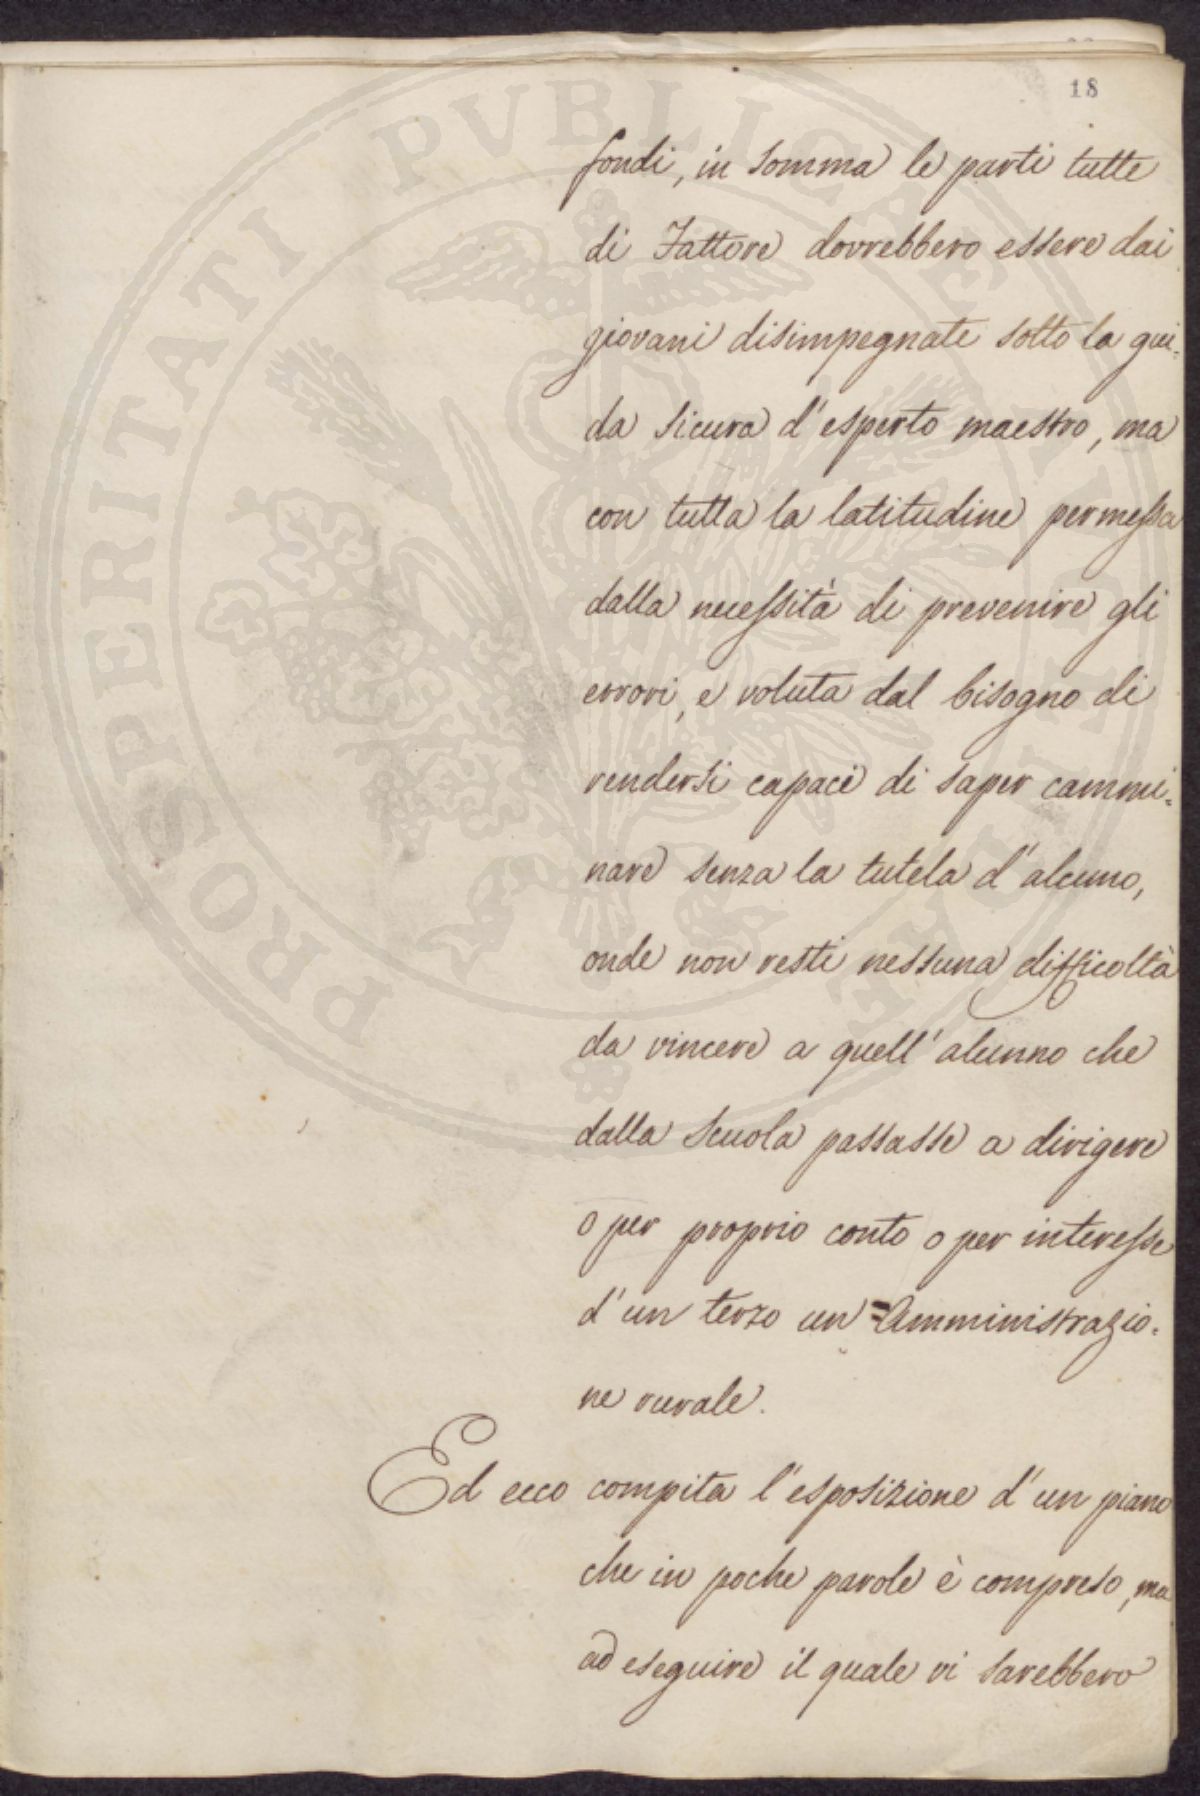 18
fondi, in somma le parti tutte
di Fattore dovrebbero essere dai
giovani disimpegnate sotto la gui=
da sicura d'esperto maestro, ma
con tutta la latitudine permessa
dalla necessità di prevenire gli
errori, e voluta dal bisogno di
rendersi capaci di saper cammi=
nare senza la tutela d'alcuno,
onde non resti nessuna difficoltà
da vincere a quell'alunno che
dalla Scuola passasse a dirigere
o per proprio conto o per interesse
d'un terzo un'Amministrazio=
ne rurale.
Ed ecco compita l'esposizione d'un piano
che in poche parole è compreso, ma
ad eseguire il quale vi sarebbero
PROSPERITATI PVBLICAE AVGENDAE